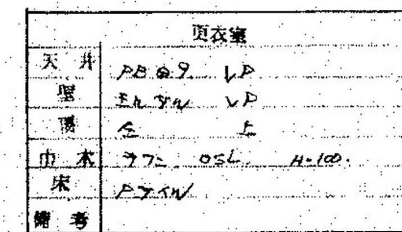 更衣室
天井 PB⑦9. VP
壁 モルタル VP
腰 仝 上
巾木 ラフニ OSL H=100.
床 Pタイル
備考